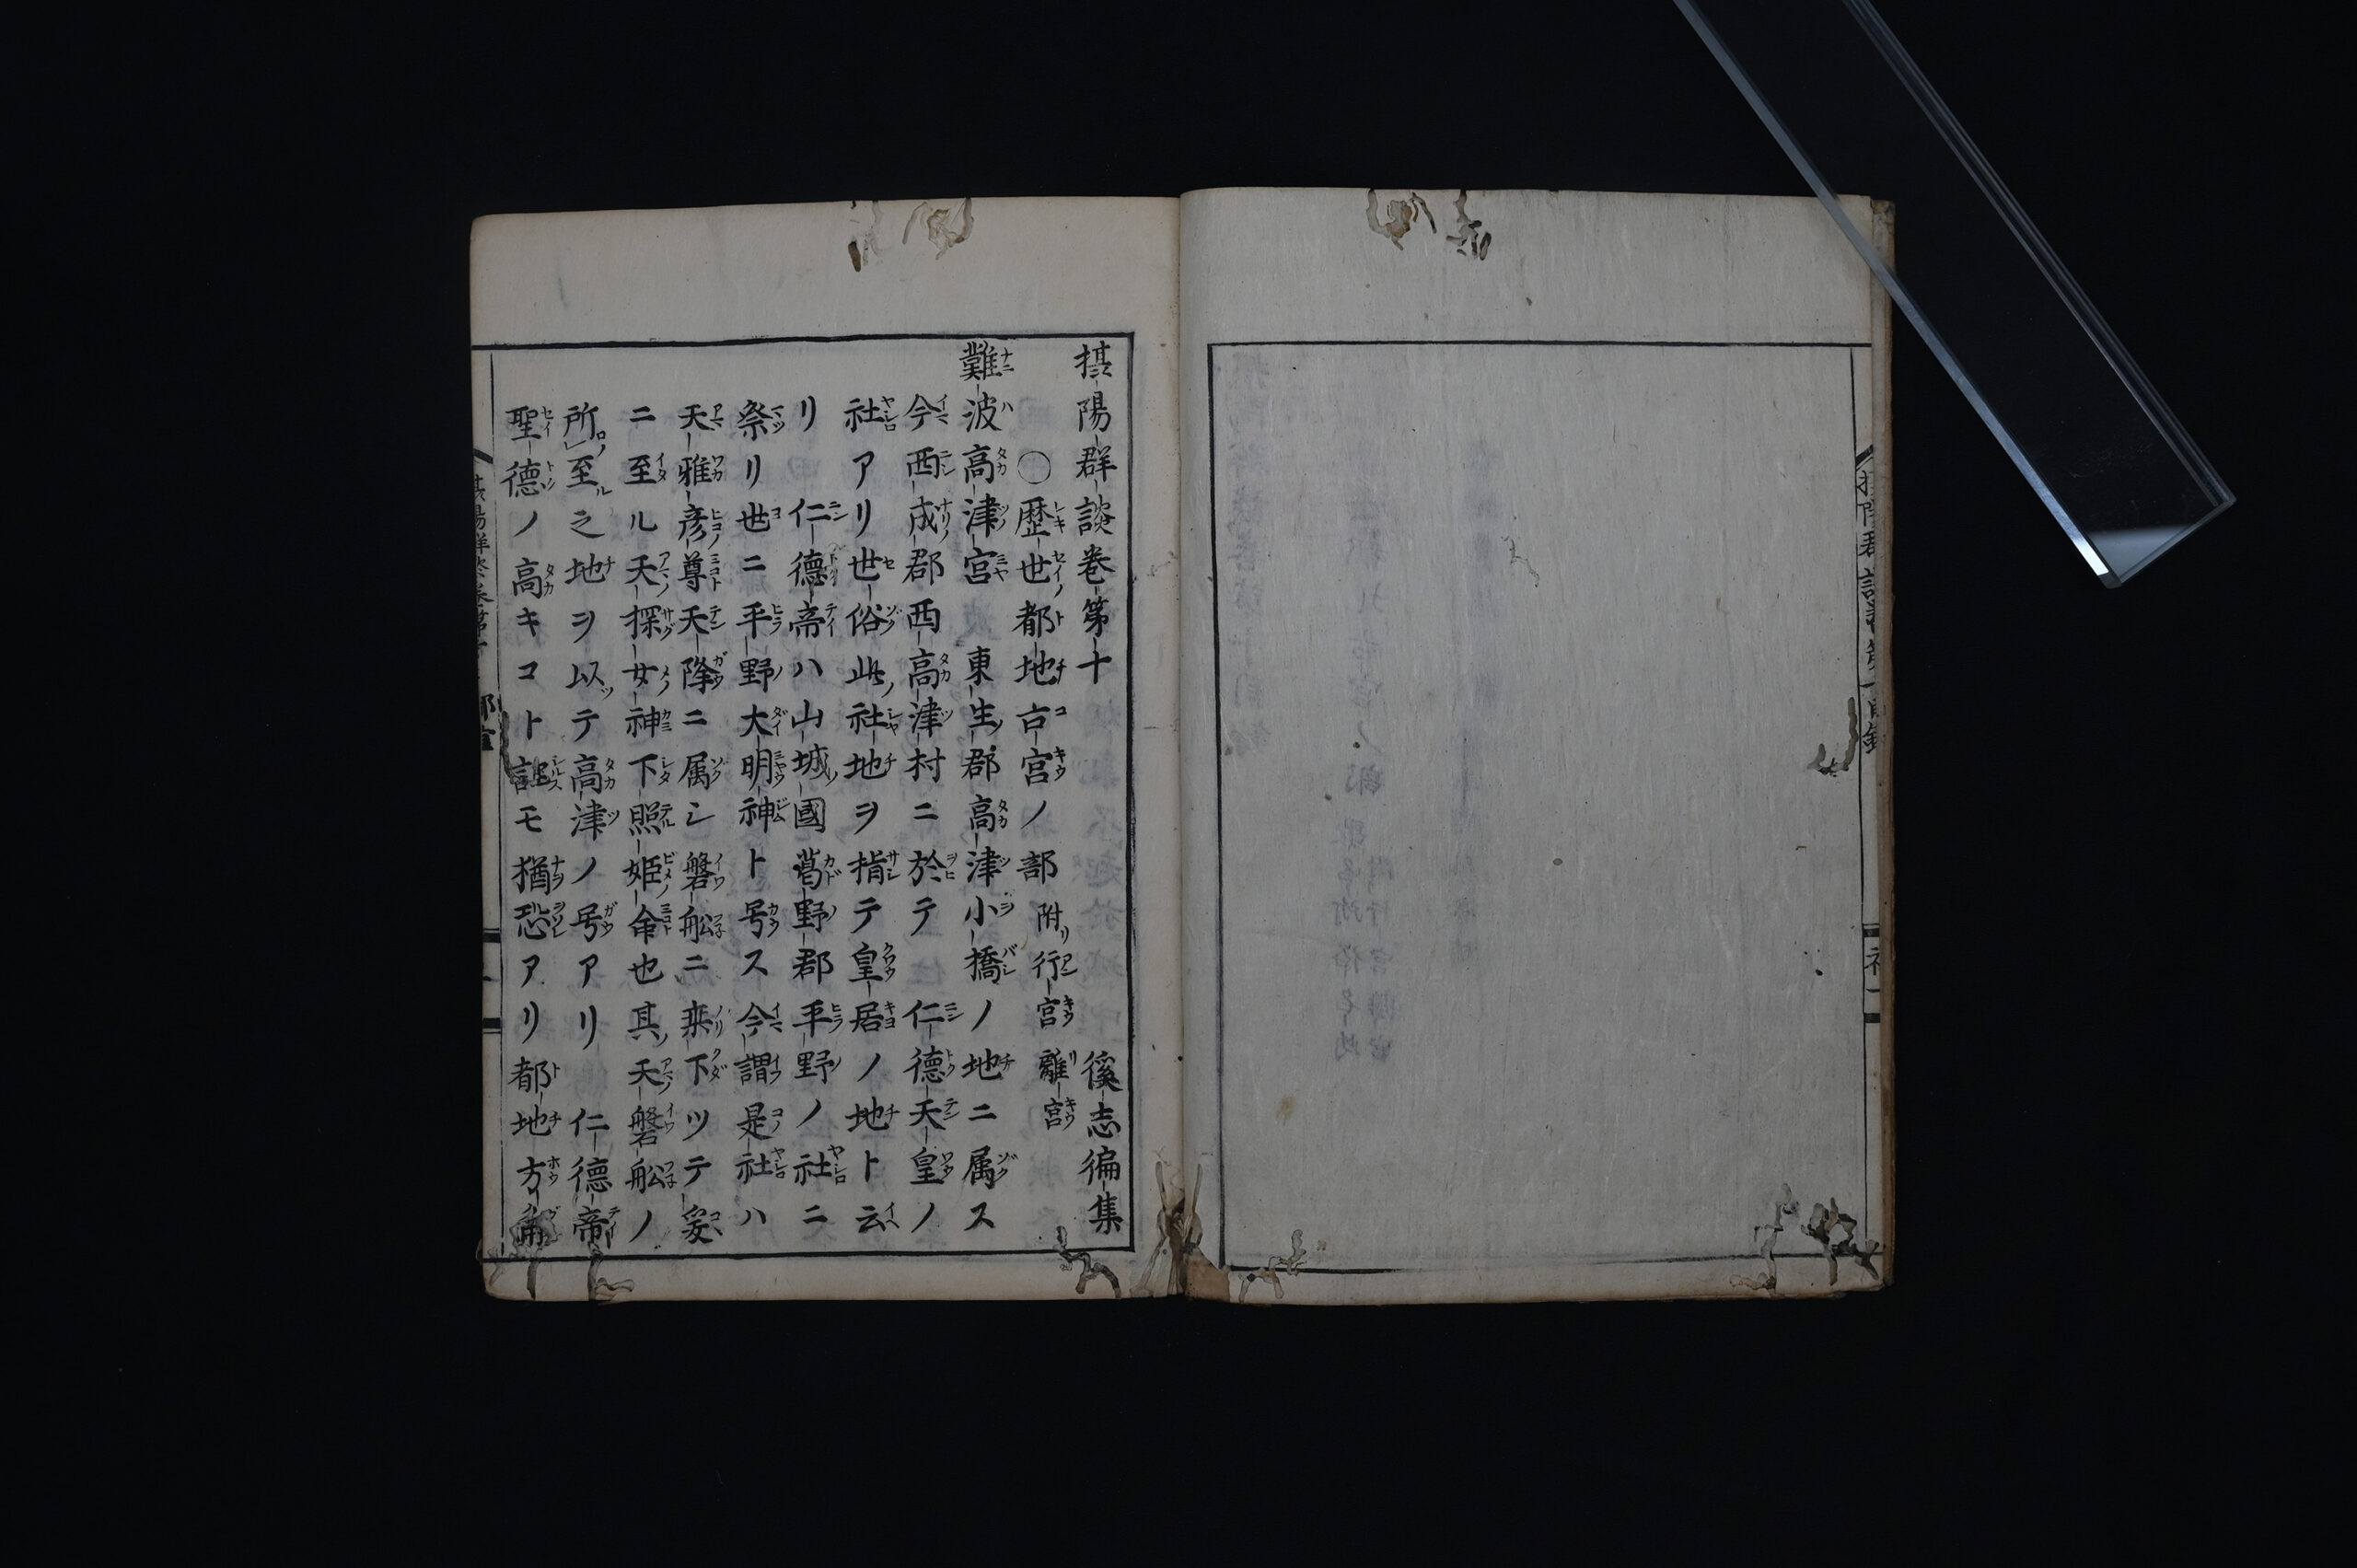 摂陽群談巻第十 徯志徧集
〇歴世都地古宮ノ部 附リ行宮 離宮
難波高津宮 東生郡高津小橋ノ地ニ属ス
今西成郡西高津村ニ於テ 仁徳天皇ノ
社アリ世俗此社地ヲ指テ皇居ノ地ト云
リ 仁徳帝ハ山城國葛野郡平野ノ社ニ
祭リ世ニ平野大明神ト号ス今謂是社ハ
天雅彦尊天降ニ属シ磐船ニ乗下ツテ爰
ニ至ル天探女神下照姫命也其天磐船ノ
所至之地ヲ以テ高津ノ号アリ 仁徳帝
聖徳ノ高キコト誌モ猶恐アリ都地方角